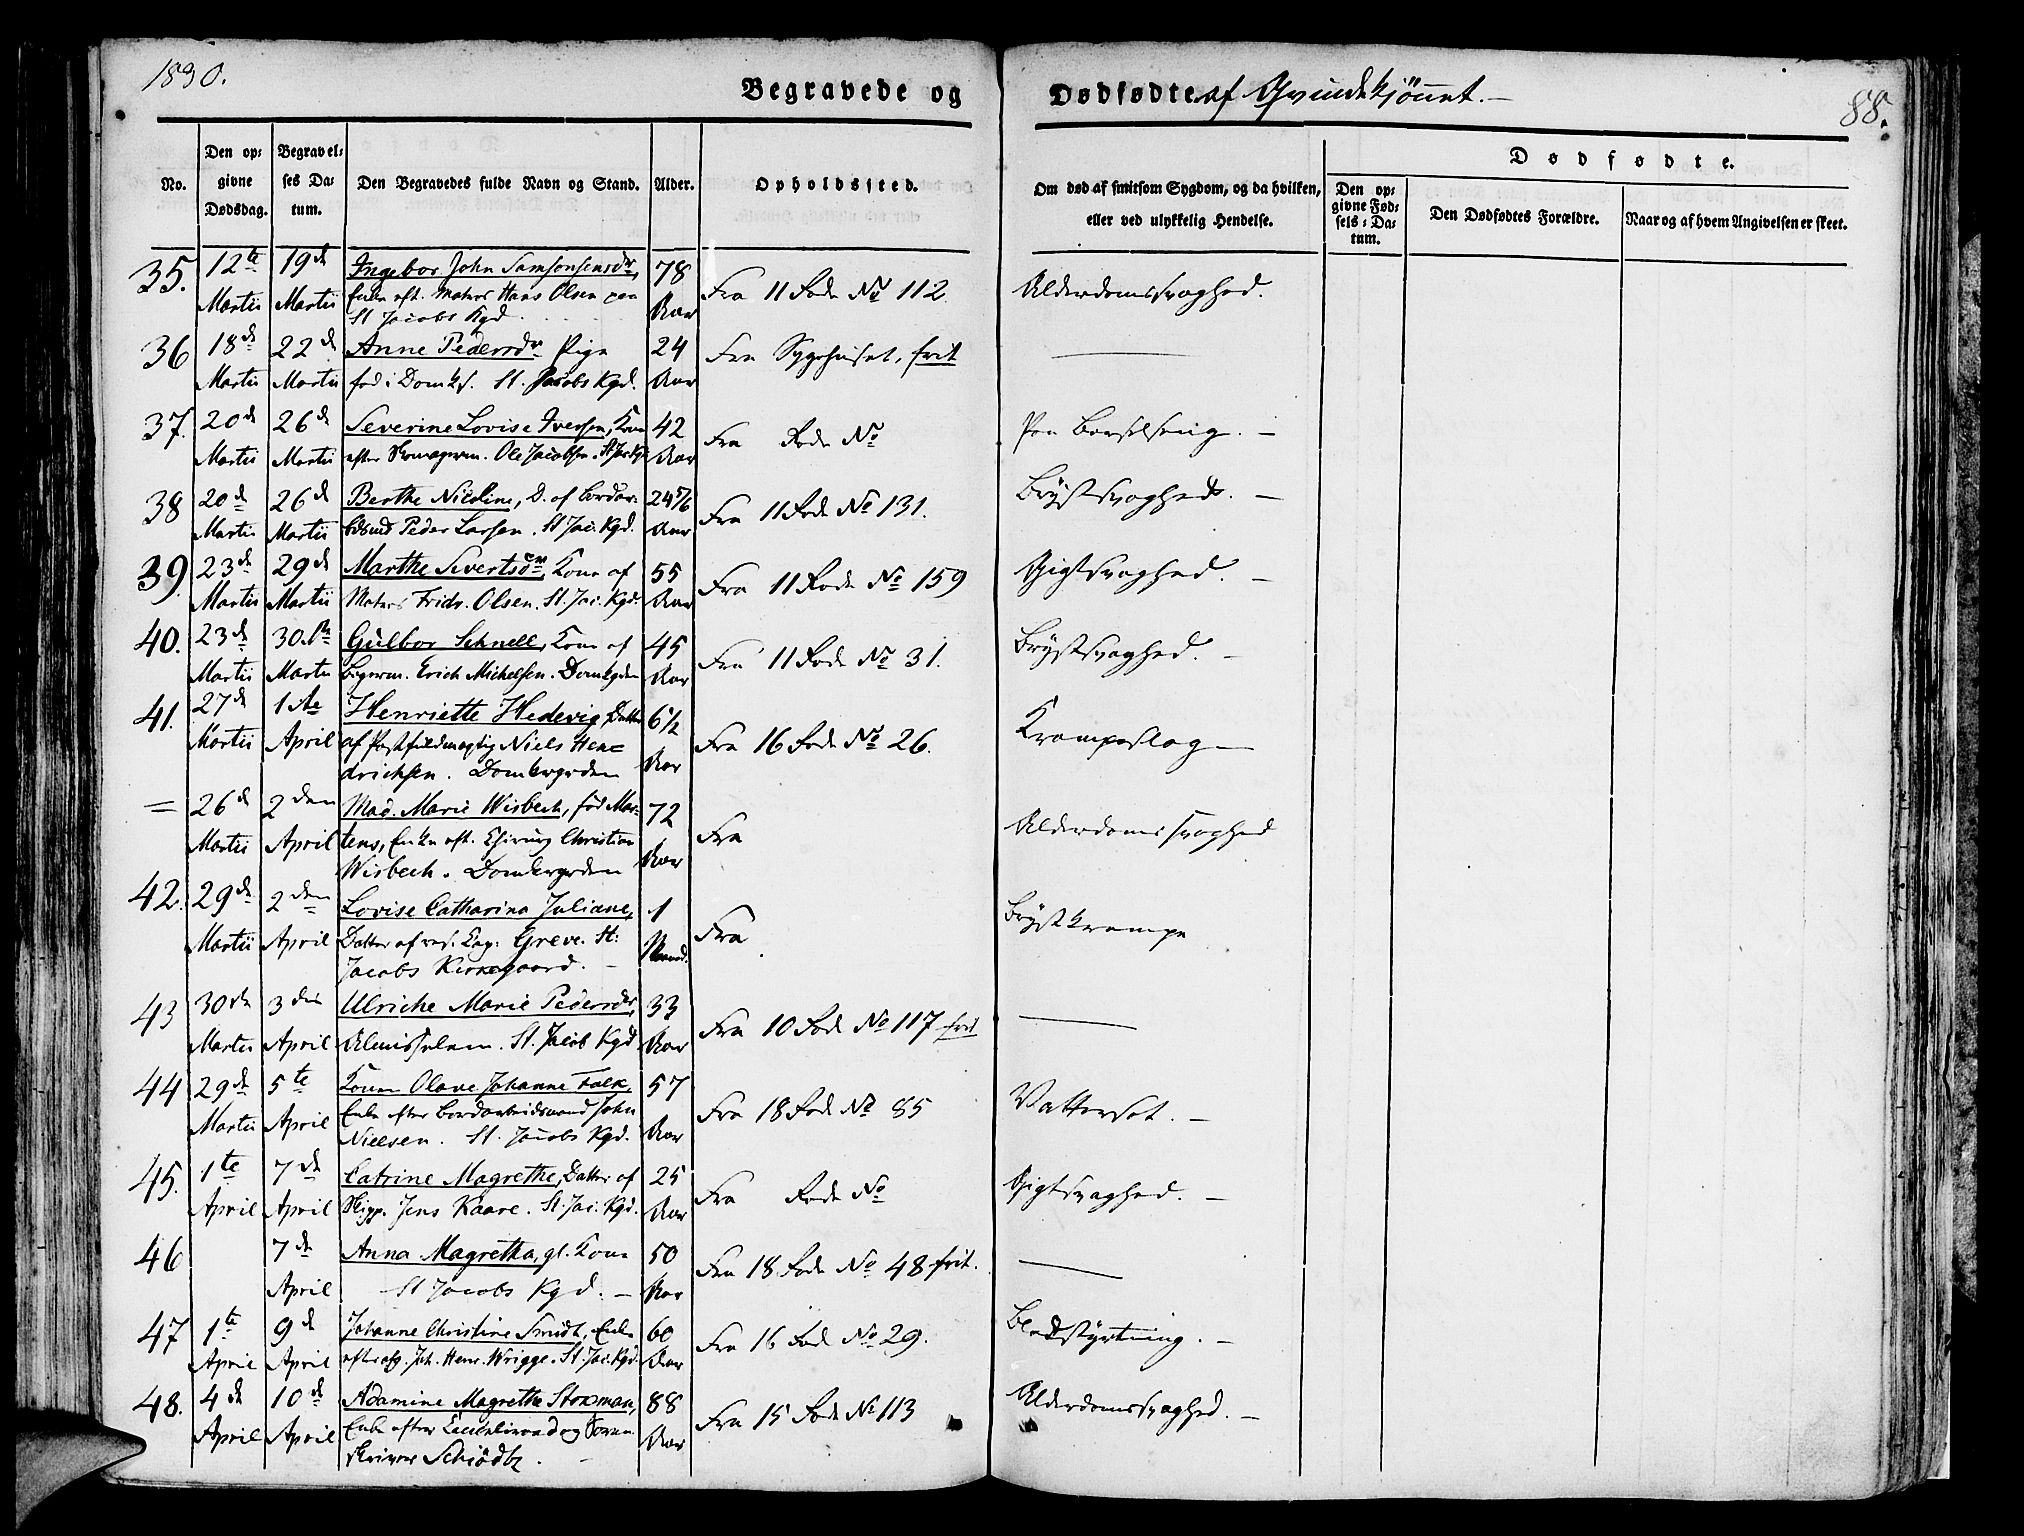 1830.
Begravede og Dødfødte af Qvindekjönnet.
88.
No.
Den opgivne Dødsdag.
Begravelses Datum.
Den Begravedes fulde Navn og Stand.
Alder.
Opholdssted.
Om død af smitsom Sygdom, og da hvilken, eller ved ulykkelig Hendelse.
Dødfødte.
Den opgivne Fødsels-Datum.
Den Dødfødtes Forældre.
Naar og af hvem Angivelsen er skeet.
35. 12te 19de Ingebor John Samsonsensdr, 78
Martii Martii Enke eft. Matros Hans Olsen paa Aar Fra 11 Rode No 112. Alderdomssvaghed.
St Jacobs Kgd.
36 18de 22de Anne Pedersdr Pige 24 Fra Sygehuset, frit
Martii Martii fød i Domks. St. Jacobs Kgd. Aar
37. 20de 26de Severine Lovise Iversen, Kone 42 Fra Rode No Paa Barselseng.
Martii Martii efter Skomagerm. Ole Jacobsen. St Jac Kgd Aar
38 20de 26de Berthe Nicoline, D. af Bordar- 24 5/6 Fra 11 Rode No 131. Brystsvaghed.
Martii Martii bdsmd Peder Larsen. St. Jac. Kgd. Aar
39. 23de 29de Marthe Sivertsdr, Kone af 55 Fra 11 Rode No 159 Gigtsvaghed.
Martii Martii Matros Fridr. Olsen. St. Jac. Kgd. Aar
40. 23de 30te Gulbor Schnell, Kone af 45 Fra 11 Rode No 31. Brystsvaghed.
Martii Martii Bogerm. Erich Michelsen. Domkgden Aar
41. 27de 1ste Henriette Hedevig, Datter 6 1/2
Martii April af Postfuldmægtig Niels Hen- Aar Fra 16 Rode No 26. Krampeslag
drichsen. Domkirgrden
= 26de 2den Mad. Marie Wisbech, fød Mar- 72
Martii April tens, Enke eft. Chirurg Christian Aar Fra Alderdomssvaghed
Wisbech. Domkirgrden
42. 29de 2den Lovise Catharina Juliane, 1
Martii April Datter af res. Cap: Greve. St: Maaned. Fra Brystkrampe
Jacobs Kirkegaard.
43 30de 3die Ulriche Marie Pedersdr, 33 Fra 10 Rode No 117 frit
Martii April Almisselem. St. Jacob Kgd Aar
44 29de 5te Konen Olave Johanne Falk, 57
Martii April Enke efter Bordarbeidsmand John Aar Fra 18 Rode No 85 Vattersot.
Nielsen. St. Jacobs Kgd.
45. 1te 7de Catrine Magrethe, Datter af 25 Fra Rode No Gigtsvaghed.
April April Skipp. Jens Kaare. St. Jac. Kgd. Aar
46 7de Anna Magretha, gl. Kone 50 Fra 18 Rode No 48 frit.
April St Jacobs Kgd. Aar
47 1te 9de Johanne Christine Smidt, Enke 60 Fra 16 Rode No 29. Blodstyrtning.
April April efter afg. Joh. Henr. Wrigge. St. Jac. Kgd. Aar
48. 4de 10de Adamine Magrethe Stoxman, 88 Fra 15 Rode No 113 Alderdomssvaghed.
April April Enke efter og Soren- Aar
skriver Schiødtz.